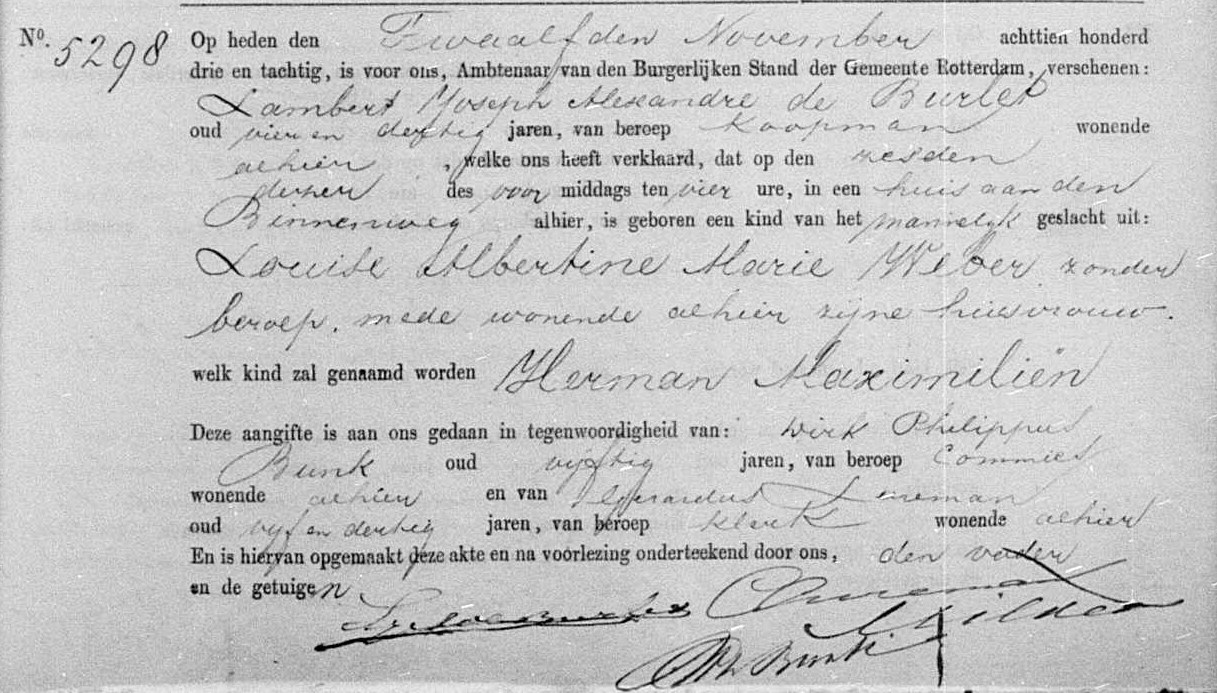 Nº. 5298 Op heden den Twaalfden November achttien honderd
drie en tachtig, is voor ons, Ambtenaar van den Burgerlijken Stand der Gemeente Rotterdam, verschenen:
Lambert Joseph Alexandre de Burlet
oud vier en dertig jaren, van beroep Koopman wonende
alhier, welke ons heeft verklaard, dat op den zesden
dezer des voor middags ten vier ure, in een huis aan den
Binnenweg alhier, is geboren een kind van het mannelijk geslacht uit:
Louise Albertine Marie Weber zonder
beroep, mede wonende alhier zijne huisvrouw.
welk kind zal genaamd worden Herman Maximiliën
Deze aangifte is aan ons gedaan in tegenwoordigheid van: Dirk Philippus
Bunk oud vijftig jaren, van beroep Commies
wonende alhier en van Gerardus
oud vijf en dertig jaren, van beroep klerk wonende alhier
En is hiervan opgemaakt deze akte en na voorlezing onderteekend door ons, den vader
en de getuigen.
Bunk